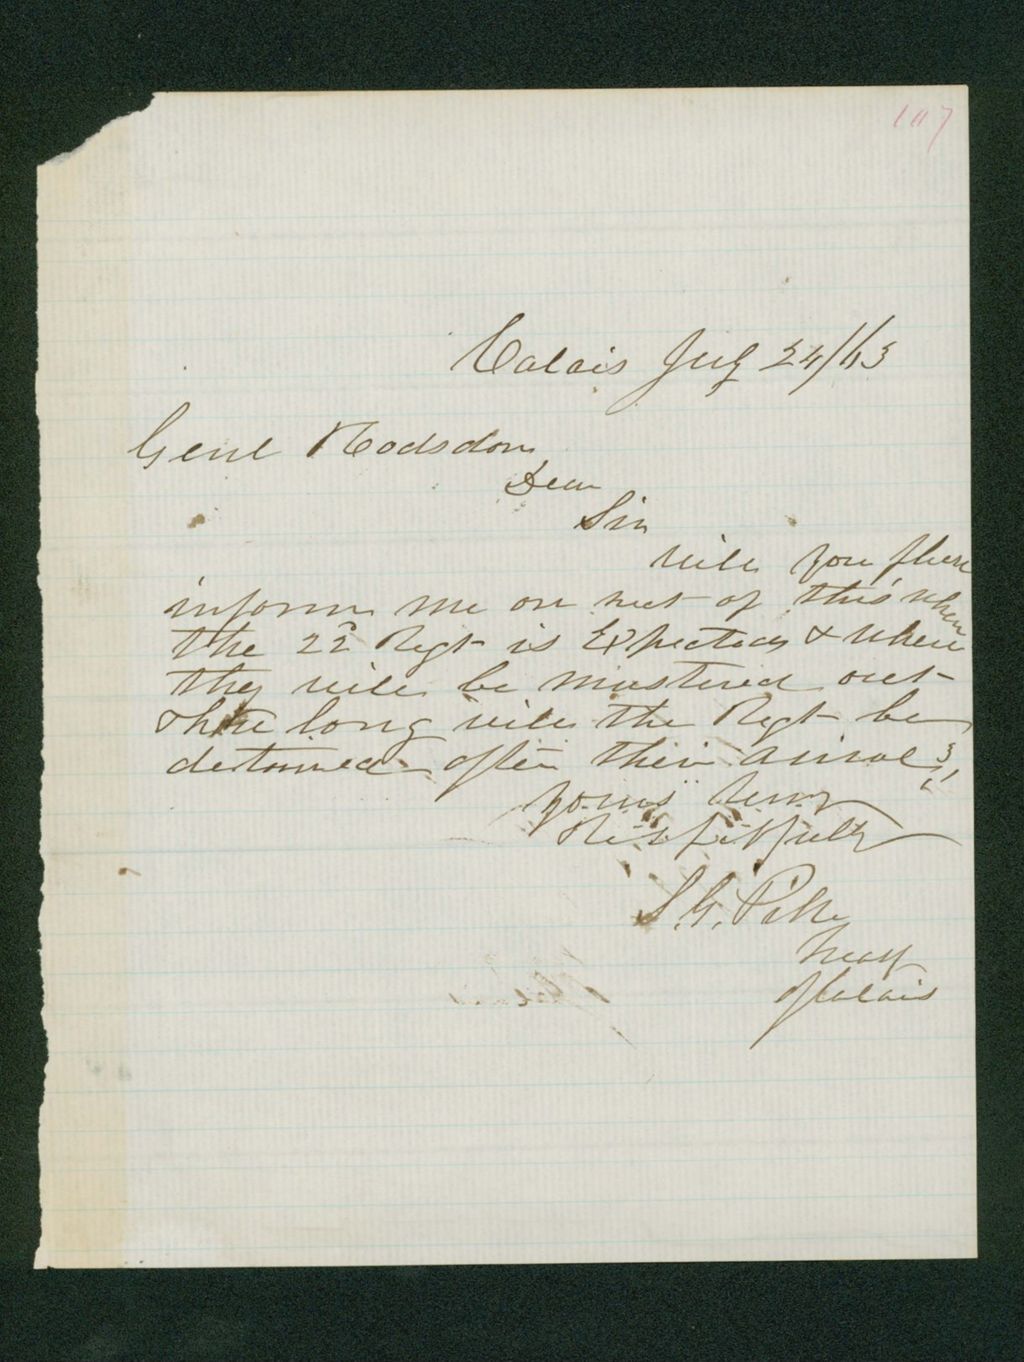 107
Calais July 24/63
Genl Hodsdon
Dear
Sir
will you please
inform me on rect of this when
the 22d Regt is Expected & where
they will be mustered out
& how long will the Regt be
detained after their arival
yours very
Respectfully
S. G. Pike
Mayor
of Calais